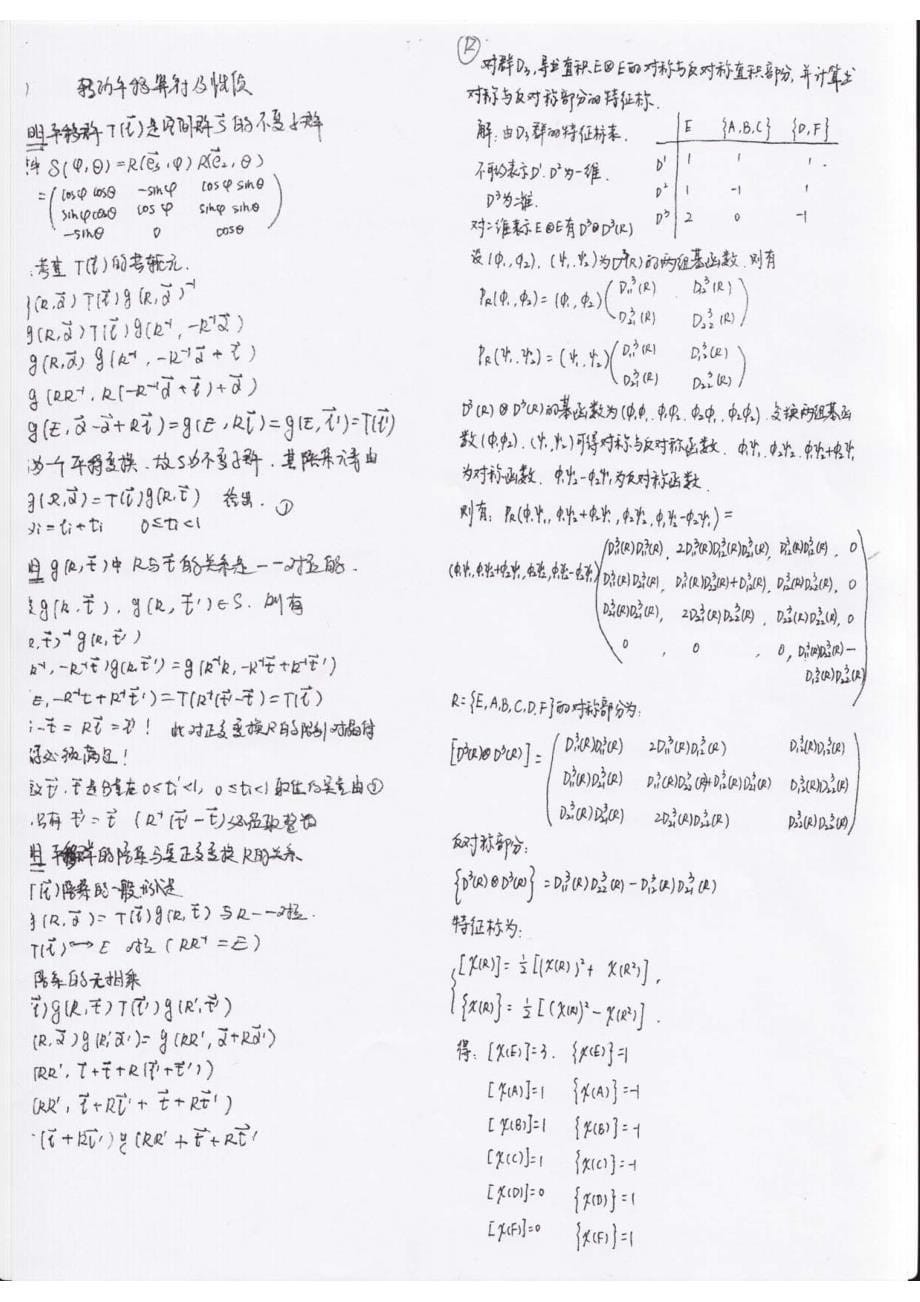 平移算符及性质
平移群 T(t⃗) 是空间群 S 的不变子群
S(φ,θ) = R(e⃗₃,φ) R(e⃗₂,θ)
= ( cosφ cosθ   -sinφ   cosφ sinθ
sinφ cosθ   cosφ   sinφ sinθ
-sinθ   0   cosθ )
考查 T(t⃗) 的共轭元.
g(R,α⃗) T(t⃗) g(R,α⃗)⁻¹
g(R,α⃗) T(t⃗) g(R⁻¹, -R⁻¹α⃗)
g(R,α⃗) g(R⁻¹, -R⁻¹α⃗ + t⃗)
g(RR⁻¹, R(-R⁻¹α⃗+t⃗)+α⃗)
g(E, α⃗-α⃗+Rt⃗) = g(E, Rt⃗) = g(E, t⃗') = T(t⃗')
为一个平移变换. 故S为不变子群. 其陪集元素由
g(R,α⃗) = T(t⃗) g(R,t⃗) 给出. ①
0≤ti<1
g(R,t⃗) 中 R与t⃗的关系是一一对应的.
g(R,t⃗), g(R,t⃗')∈S. 则有
R,t⃗)⁻¹ g(R,t⃗')
R⁻¹, -R⁻¹t⃗) g(R,t⃗') = g(R⁻¹R, -R⁻¹t⃗+R⁻¹t⃗')
E, -R⁻¹t+R⁻¹t⃗') = T(R⁻¹(t⃗'-t⃗)) = T(t⃗)
-t⃗ = Rt⃗ ! 此对正交变换R的限制对晶体
必须满足!
设 t⃗', t⃗ 是 在 0≤ti'<1, 0≤ti<1 取值 由①
只有 t⃗' = t⃗ (R⁻¹(t⃗'-t⃗)必须取整
的陪集与正交变换R的关系
T(t⃗)陪集的一般形式是
g(R,α⃗) = T(t⃗) g(R,t⃗) 与R一一对应.
T(t⃗) ↔ E 对应 (RR⁻¹ = E)
陪集的元相乘
t⃗) g(R,t⃗) T(t⃗') g(R',t⃗')
(R,α⃗) g(R',α⃗') = g(RR', α⃗+Rα⃗')
(RR', t⃗+t⃗+R(t⃗'+t⃗'))
(RR', t⃗+Rt⃗' + t⃗+Rt⃗')
(t⃗+Rt⃗') g(RR' + t⃗+Rt⃗'
12
对群D₃, 导出直积E⊗E的对称与反对称直积部分, 并计算出
对称与反对称部分的特征标.
解: 由D₃群的特征标表.
不可约表示D¹. D²为一维.
D³为二维.
对二维表示E⊗E有D³⊗D³(R)
E   {A,B,C}   {D,F}
D¹   1   1   1
D²   1   -1   1
D³   2   0   -1
设(φ₁,φ₂), (ψ₁,ψ₂)为D³(R)的两组基函数. 则有
P_R(φ₁,φ₂) = (φ₁,φ₂) ( D₁₁³(R)   D₁₂³(R)
D₂₁³(R)   D₂₂³(R) )
P_R(ψ₁,ψ₂) = (ψ₁,ψ₂) ( D₁₁³(R)   D₁₂³(R)
D₂₁³(R)   D₂₂³(R) )
D³(R)⊗D³(R)的基函数为(φ₁φ₁, φ₁φ₂, φ₂φ₁, φ₂φ₂). 交换两组基函
数(φ₁φ₂), (ψ₁,ψ₂)可得对称与反对称函数. φ₁ψ₁, φ₂ψ₂, φ₁ψ₂+φ₂ψ₁
为对称函数. φ₁ψ₂-φ₂ψ₁为反对称函数.
则有: P_R(φ₁ψ₁, φ₁ψ₂+φ₂ψ₁, φ₂ψ₂, φ₁ψ₂-φ₂ψ₁) =
(φ₁ψ₁, φ₁ψ₂+φ₂ψ₁, φ₂ψ₂, φ₁ψ₂-φ₂ψ₁) ( D₁₁³(R)D₁₁³(R), 2D₁₁³(R)D₁₂³(R), D₁₂³(R)D₁₂³(R), 0
D₁₁³(R)D₂₁³(R), D₁₁³(R)D₂₂³(R)+D₁₂³(R), D₁₂³(R)D₂₂³(R), 0
D₂₁³(R)D₂₁³(R), 2D₂₁³(R)D₂₂³(R), D₂₂³(R)D₂₂³(R), 0
0, 0, 0, D₁₁³(R)D₂₂³(R)-
D₁₂³(R)D₂₁³(R) )
R={E,A,B,C,D,F}的对称部分为:
[D³(R)⊗D³(R)] = ( D₁₁³(R)D₁₁³(R)   2D₁₁³(R)D₁₂³(R)   D₁₂³(R)D₁₂³(R)
D₁₁³(R)D₂₁³(R)   D₁₁³(R)D₂₂³(R)+D₁₂³(R)D₂₁³(R)   D₁₂³(R)D₂₂³(R)
D₂₁³(R)D₂₁³(R)   2D₂₁³(R)D₂₂³(R)   D₂₂³(R)D₂₂³(R) )
反对称部分:
{D³(R)⊗D³(R)} = D₁₁³(R)D₂₂³(R) - D₁₂³(R)D₂₁³(R)
特征标为:
[χ(R)] = ½[(χ(R))² + χ(R²)],
{χ(R)} = ½[(χ(R))² - χ(R²)].
得: [χ(E)]=3. {χ(E)}=1
[χ(A)]=1 {χ(A)}=-1
[χ(B)]=1 {χ(B)}=-1
[χ(C)]=1 {χ(C)}=-1
[χ(D)]=0 {χ(D)}=1
[χ(F)]=0 {χ(F)}=1